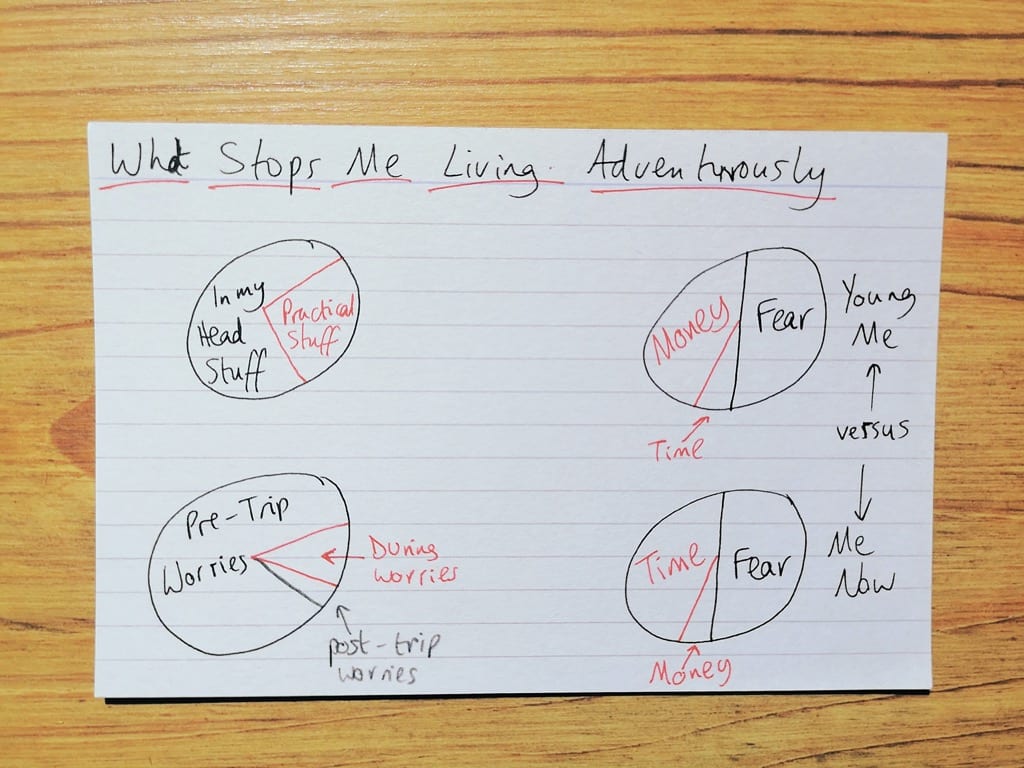 What Stops Me Living Adventurously
In my
Head
Stuff
Practical
Stuff
Money
Fear
Time
Young
Me
versus
Me
Now
Pre-Trip
Worries
During
worries
post-trip
worries
Time
Fear
Money